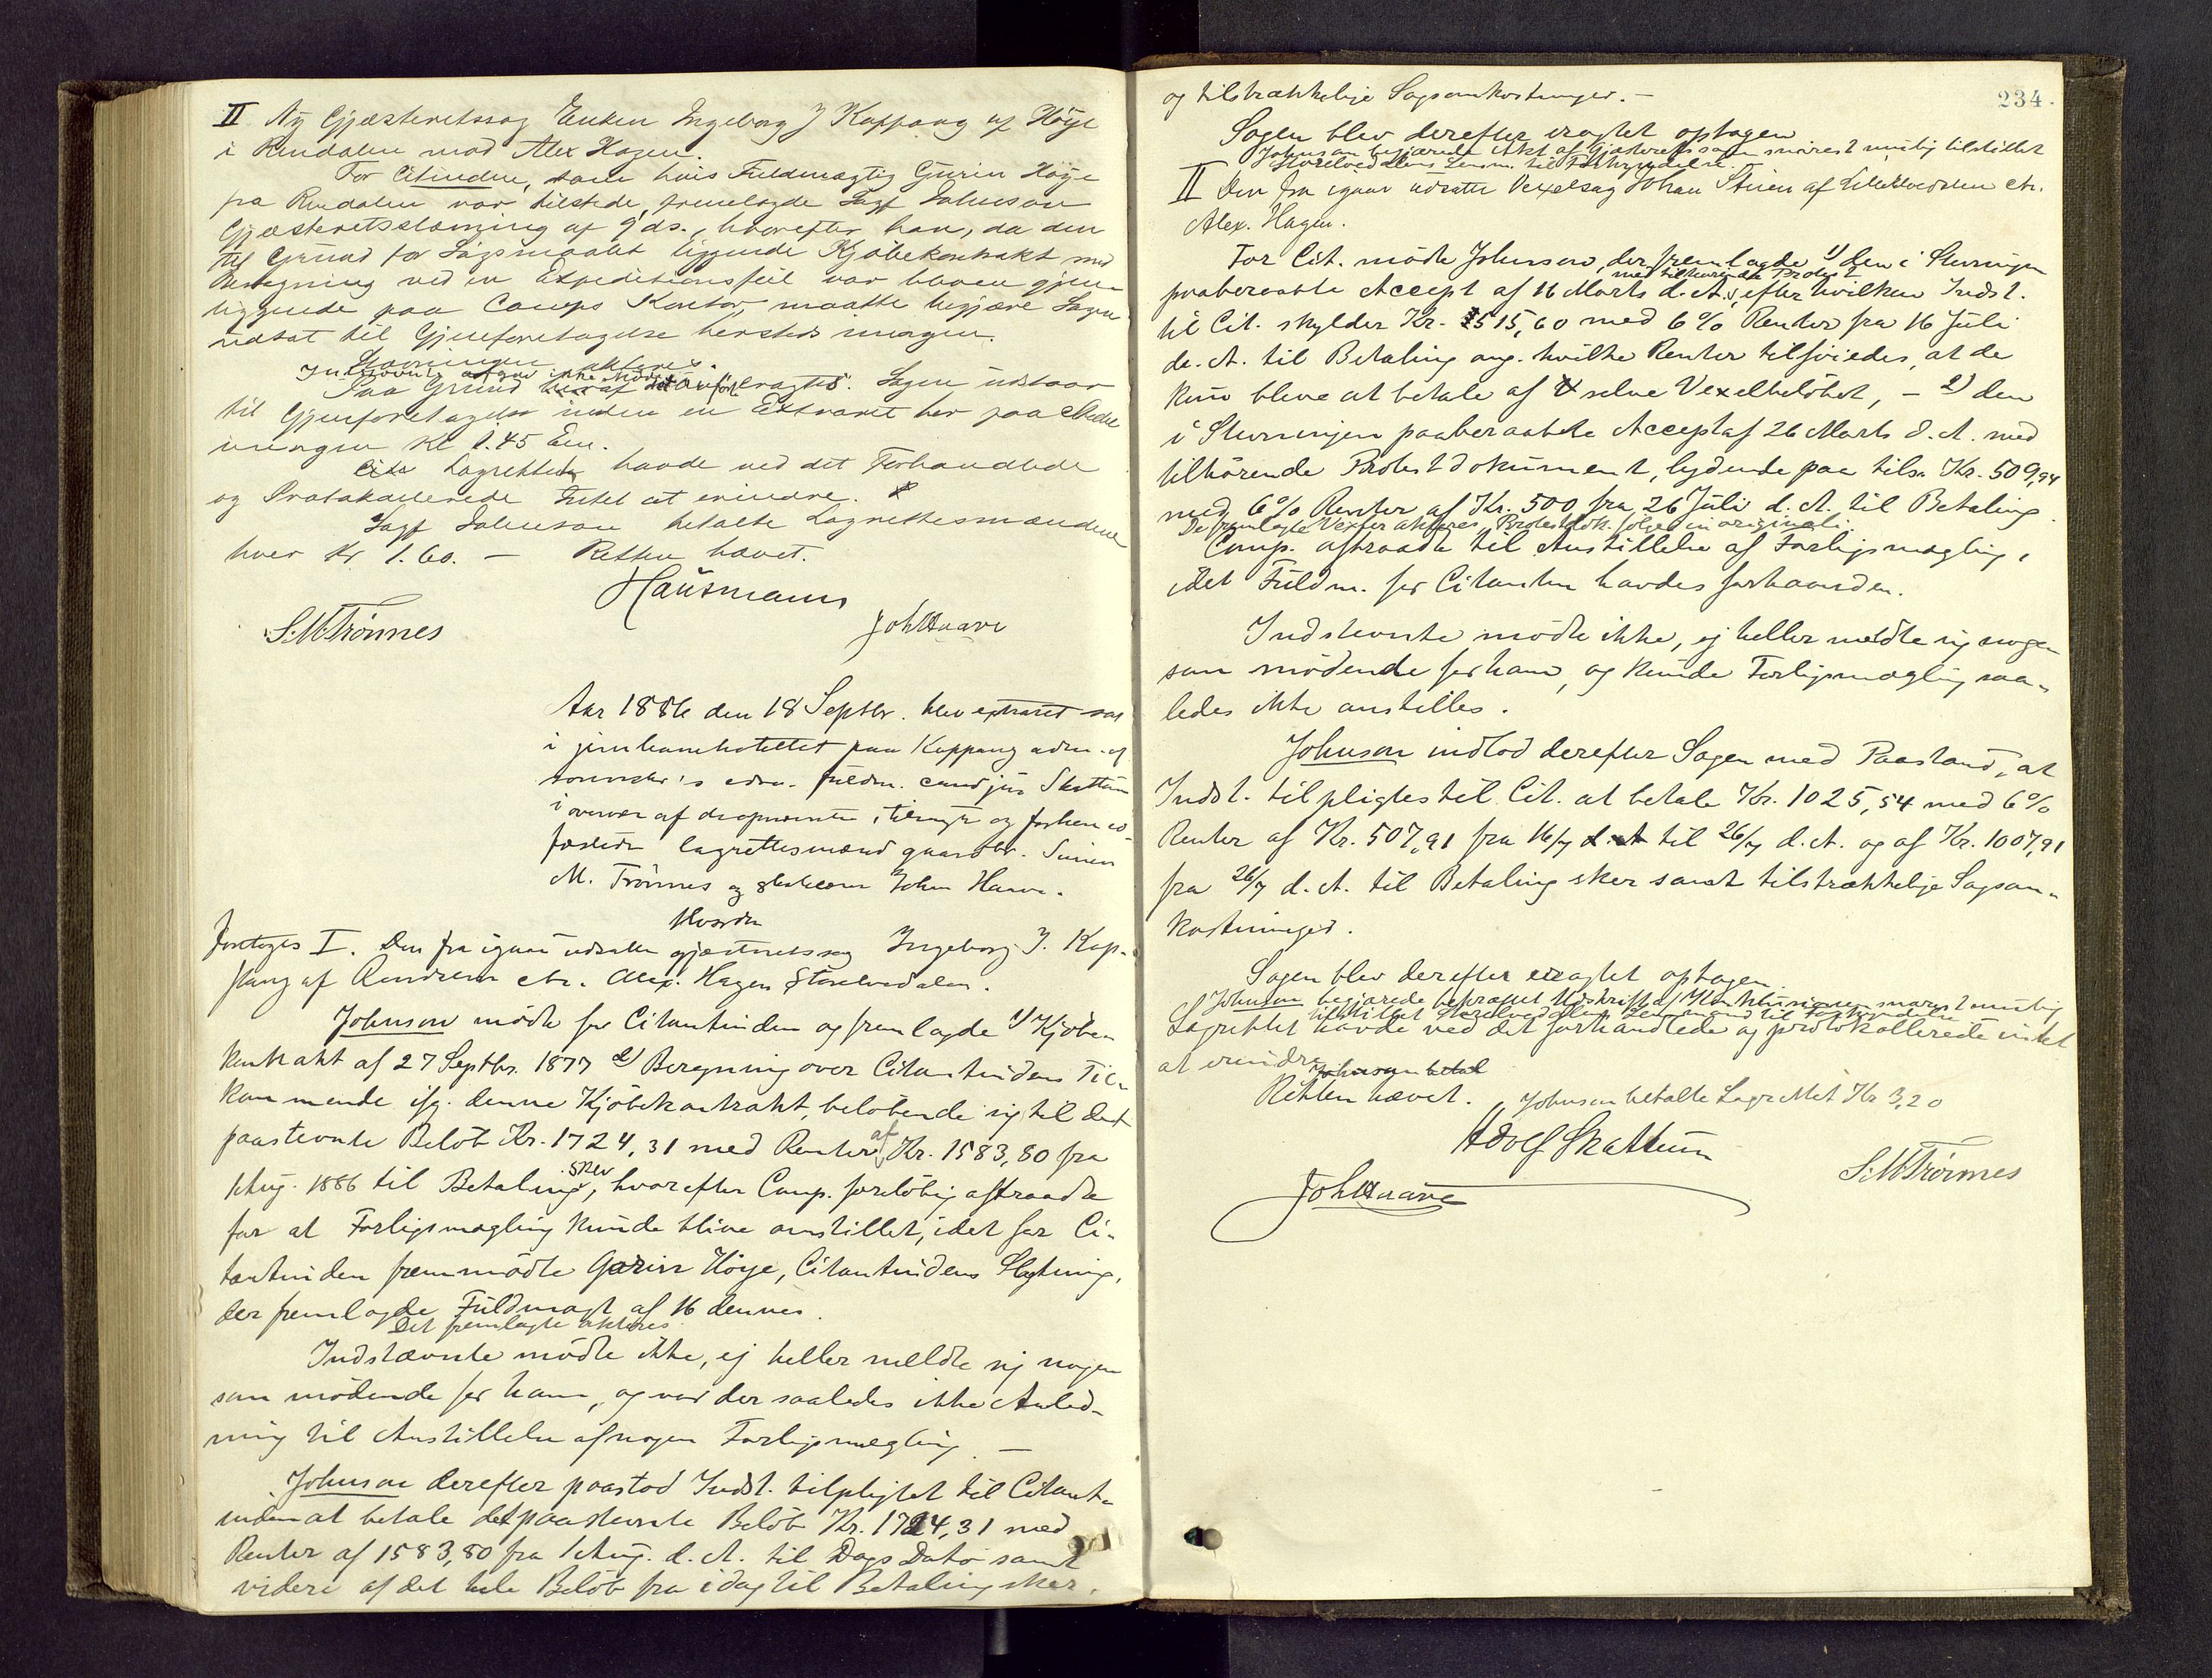 II Ny Gjæsteretssag Enken Ingeborg J Koppang af Höye
i Rendalen mod Alex Hagen.
For Citinden, som hvis Fuldmægtig Gürin Höye
fra Rendalen var tilstede, fremlagde Sagf Johnson
Gjæsteretsstævning af 9 ds., hvorefter han, da den
til Grund for Sagsmaalet liggende Kjöbekontrakt med
Beregning ved en Expeditionsfeil var bleven gjen-
liggende paa Comps Kontor, maatte begjære Sagen
udsat til Gjenforetagelse hersteds imorgen.
Stævningen akteres.
Indstævnte afgav ikke Möde
Paa Grund heraf det anförte eragtes: Sagen udstaar
til Gjenforetagelse inden en Extraret her paa Stedet
imorgen Kl 1.45 Em.
Lagrettet havde ved det Forhandlede
og Protokollerede Intet at erindre.
Sagf Johnson betalte Lagrettesmændene
hver Kr 1.60. — Retten hævet.
Hansmann
S. M. Trönnes
Joh Haave
Aar 1886 den 18 Septbr. blev extraret sat
i jernbanehotellet paa Koppang adm. af
sorenskr's edsv. fuldm. cand jur Skattum
i overvær af de opnævnte, tilsagte og forhen ed-
fæstede lagrettesmænd gaardbr. Simen
M. Trönnes og John Haave.
Hvorda
foretoges I. Den fra igaar udsatte gjæsteretssag Ingeborg J. Kop-
pang af Rendalen ctr. Alex. Hagen Storelvedalen.
Johnson mödte for Citantinden og fremlagde 1) Kjöbe-
kontrakt af 27 Septbr. 1877 2) Beregning over Citantindens Til-
kommende ifg. denne Kjöbekontrakt, belöbende sig til det
paastevnte Belöb Kr. 1724,31 med Renter af Kr. 1583,80 fra
1 Aug. 1886 til Betaling sker, hvorefter Comp. foreløbig aftraadte
for at Forligsmægling kunde blive anstillet, idet for Ci-
tantinden fremmödte Gørin Höye, Citantindens Slægtning,
der fremlagde Fuldmagt af 16 dennes.
Det fremlagte akteres
Indstævnte mödte ikke, ej heller meldte sig nogen
som mödende for ham, og var der saaledes ikke Anled-
ning til Anstillelse af nogen Forligsmægling —
Johnson derefter paastod Indst. tilpligtet til Citant-
inden at betale det paastevnte Belöb Kr. 1724,31 med
Renter af 1583,80 fra 1 Aug. d. A. til Dags Dato samt
videre af det hele Belöb fra idag til Betaling sker.
234.
og tilstrækkelige Sagsomkostninger. —
Sagen blev derefter eragtet optagen
Johnson begjærede Akt af Gjæsteretssagen snarest mulig tilstillet
Storelvedalens Lensm. til Forkyndelse. —
II Den fra igaar udsatte Vexelsag Johan Steien af Lilleelvedalen ctr.
Alex. Hagen.
For Cit. mödte Johnson, der fremlagde 1) den i Stevningen
paaberaabte Accept af 16 Marts d. A. med tilhörende Protest, efter hvilken Indst.
til Cit. skylder Kr. 515,60 med 6 % Renter fra 16 Juli
d. A. til Betaling ang. hvilke Renter tilföiedes, at de
kun bleve at betale af selve Vexelbelöbet, — 2) den
i Stevningen paaberaabte Accept af 26 Marts d. A. med
tilhörende Protestdokument, lydende paa tils. Kr. 509,94
med 6 % Renter af Kr. 500 fra 26 Juli d. A. til Betaling.
De fremlagte Vexler akteres, Protestdok. følger in originali.
Comp. aftraadte til Anstillelse af Forligsmægling,
idet Fuldm. for Citanten havdes forhaanden.
Indstevnte mödte ikke, ej heller meldte sig nogen
som mödende for ham, og kunde Forligsmægling saa-
ledes ikke anstilles.
Johnson indlod derefter Sagen med Paastand, at
Indst. tilpligtes til Cit. at betale Kr. 1025,54 med 6 %
Renter af Kr. 507,91 fra 16/7 d. A til 26/7 d. A. og af Kr. 1007,91
fra 26/7 d. A. til Betaling sker samt tilstrækkelige Sagsom-
kostninger.
Sagen blev derefter eragtet optagen
Johnson begjærede bekræftet Udskrift af Konklusionen snarest mulig
tilstillet Storelvedalens Lensmand til Forkyndelse —
Lagrettet havde ved det forhandlede og protokollerede intet
at erindre. Johnson betal
Retten hævet. Johnson betalte Lagrettet Kr 3,20
Adolf Skattum
S. M. Trönnes
Joh Haave